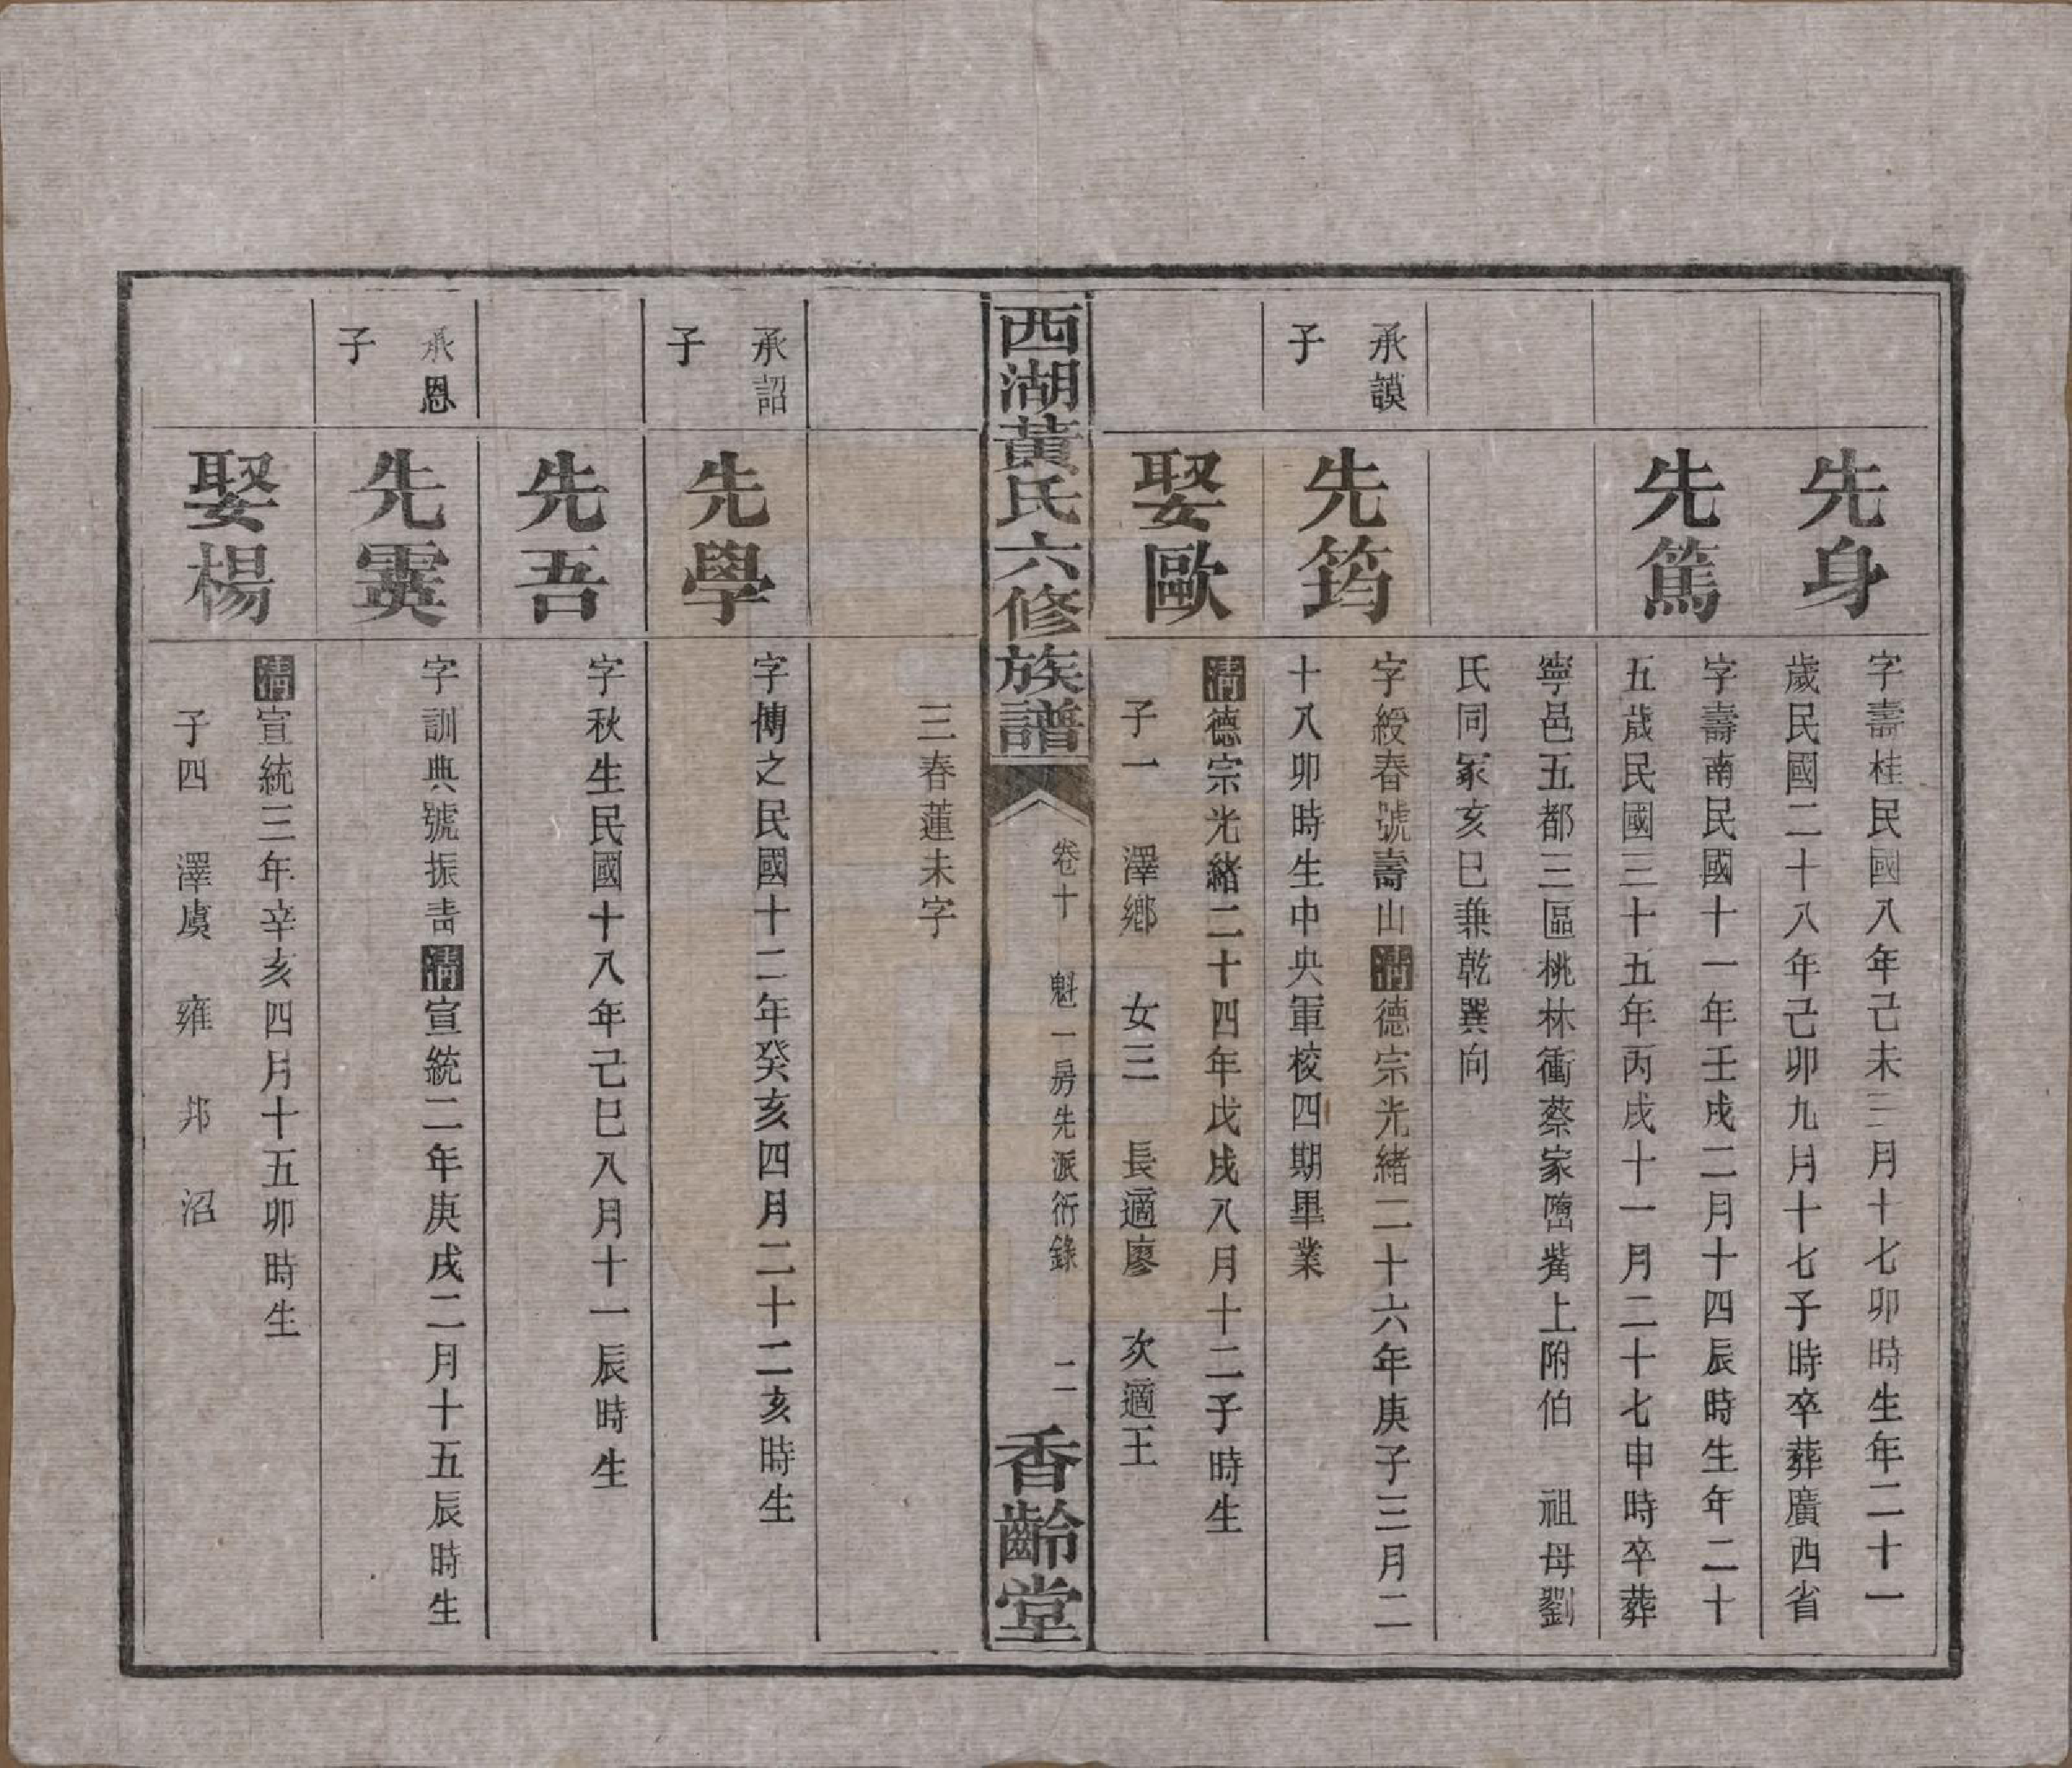 先身
字壽桂民國八年己未三月十七卯時生年二十一
歲民國二十八年己卯九月十七子時卒葬廣西省
先篤
字壽南民國十一年壬戌二月十四辰時生年二十
五歲民國三十五年丙戌十一月二十七申時卒葬
寧邑五都三區桃林衝蔡家嘴上附伯 祖母劉
氏同冢亥巳兼乾巽向
承謨
子
先筠
字綬春號壽山清德宗光緒二十六年庚子三月二
十八卯時生中央軍校四期畢業
娶歐
清德宗光緒二十四年戊戌八月十二子時生
子一 澤鄉 女三 長適廖 次適王
西湖黃氏六修族譜
卷十 魁一房先派衍錄 二一
香齡堂
三春蓮未字
承詔
子
先學
字傅之民國十二年癸亥四月二十二亥時生
先吾
字秋生民國十八年己巳八月十一辰時生
承恩
子
先霙
字訓典號振青清宣統二年庚戌二月十五辰時生
娶楊
清宣統三年辛亥四月十五卯時生
子四 澤虞 雍 邦 沼